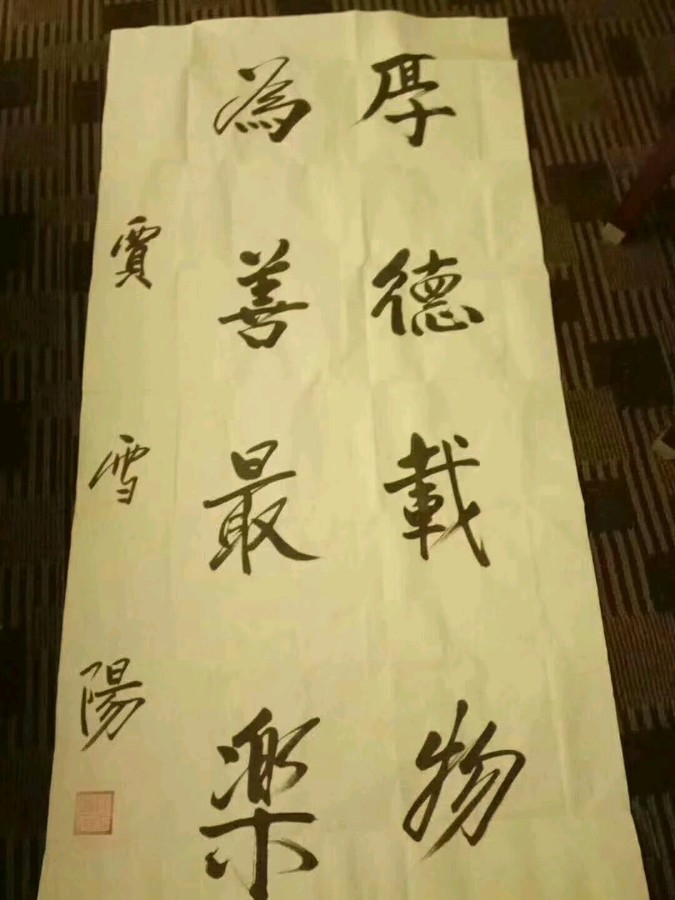 厚德載物
為善最樂
賈雪陽